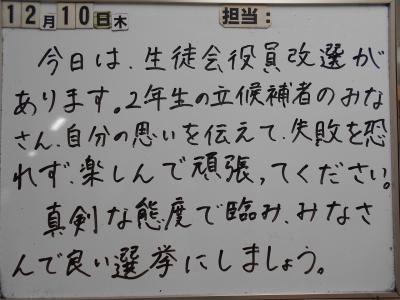 12月10日木 担当:
今日は、生徒会役員改選が
あります。2年生の立候補者のみな
さん、自分の思いを伝えて、失敗を恐
れず、楽しんで頑張ってください。
真剣な態度で臨み、みなさ
んで良い選挙にしましょう。